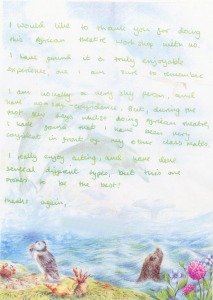 I would like to thank you for doing
this African theatre workshop with us.
I have found it a truly enjoyable
experience, one I am sure to remember
I am usually a very shy person, and
have low self-confidence. But, during the
past few days whilst doing African theatre,
I have found that I have been very
confident in front of my other class mates.
I really enjoy acting, and have done
several different types, but this one
proves to be the best!
Thanks again,